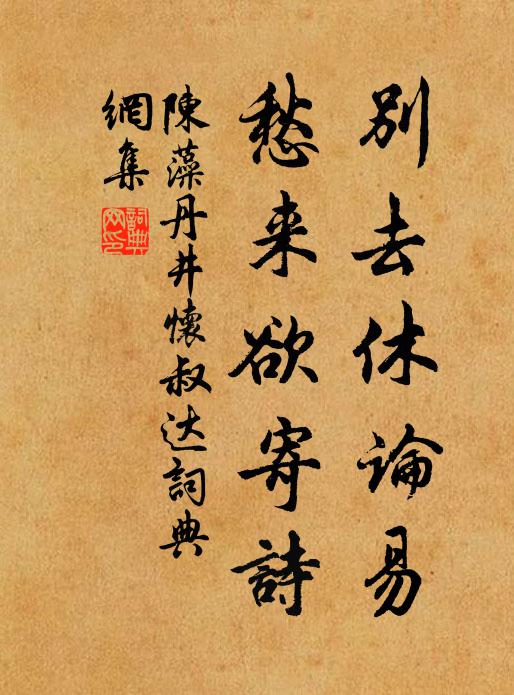 別去休論易
愁来欲寄詩
陳藻丹井懷叔达詞典
網集
詞典
网印